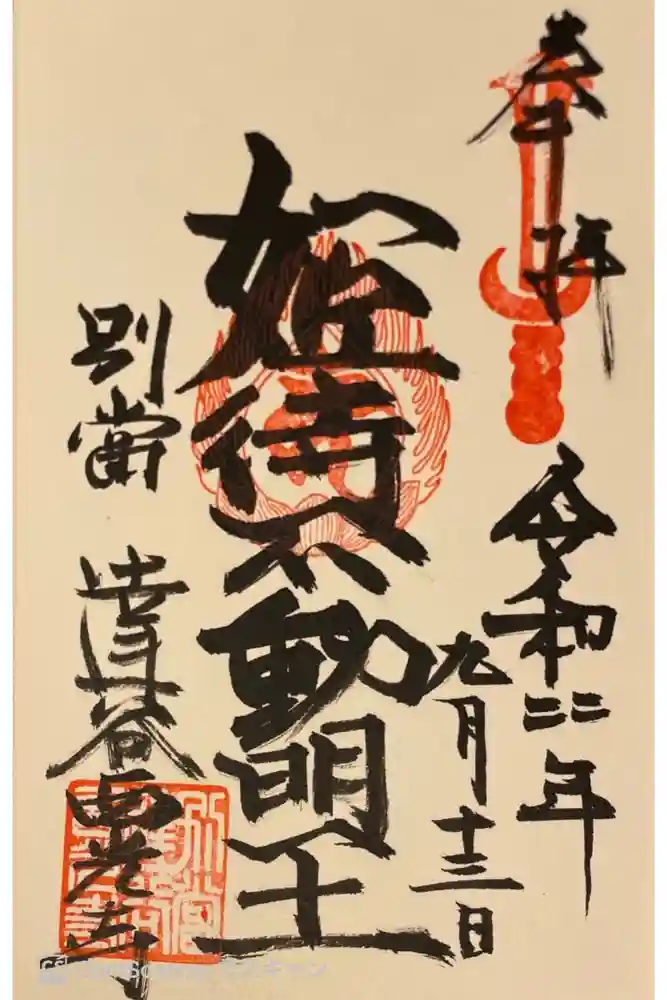 奉拝
令和二二年
九月十三日
姫待不動明王
別當
達谷西光寺
CS CamScanner でスキャン